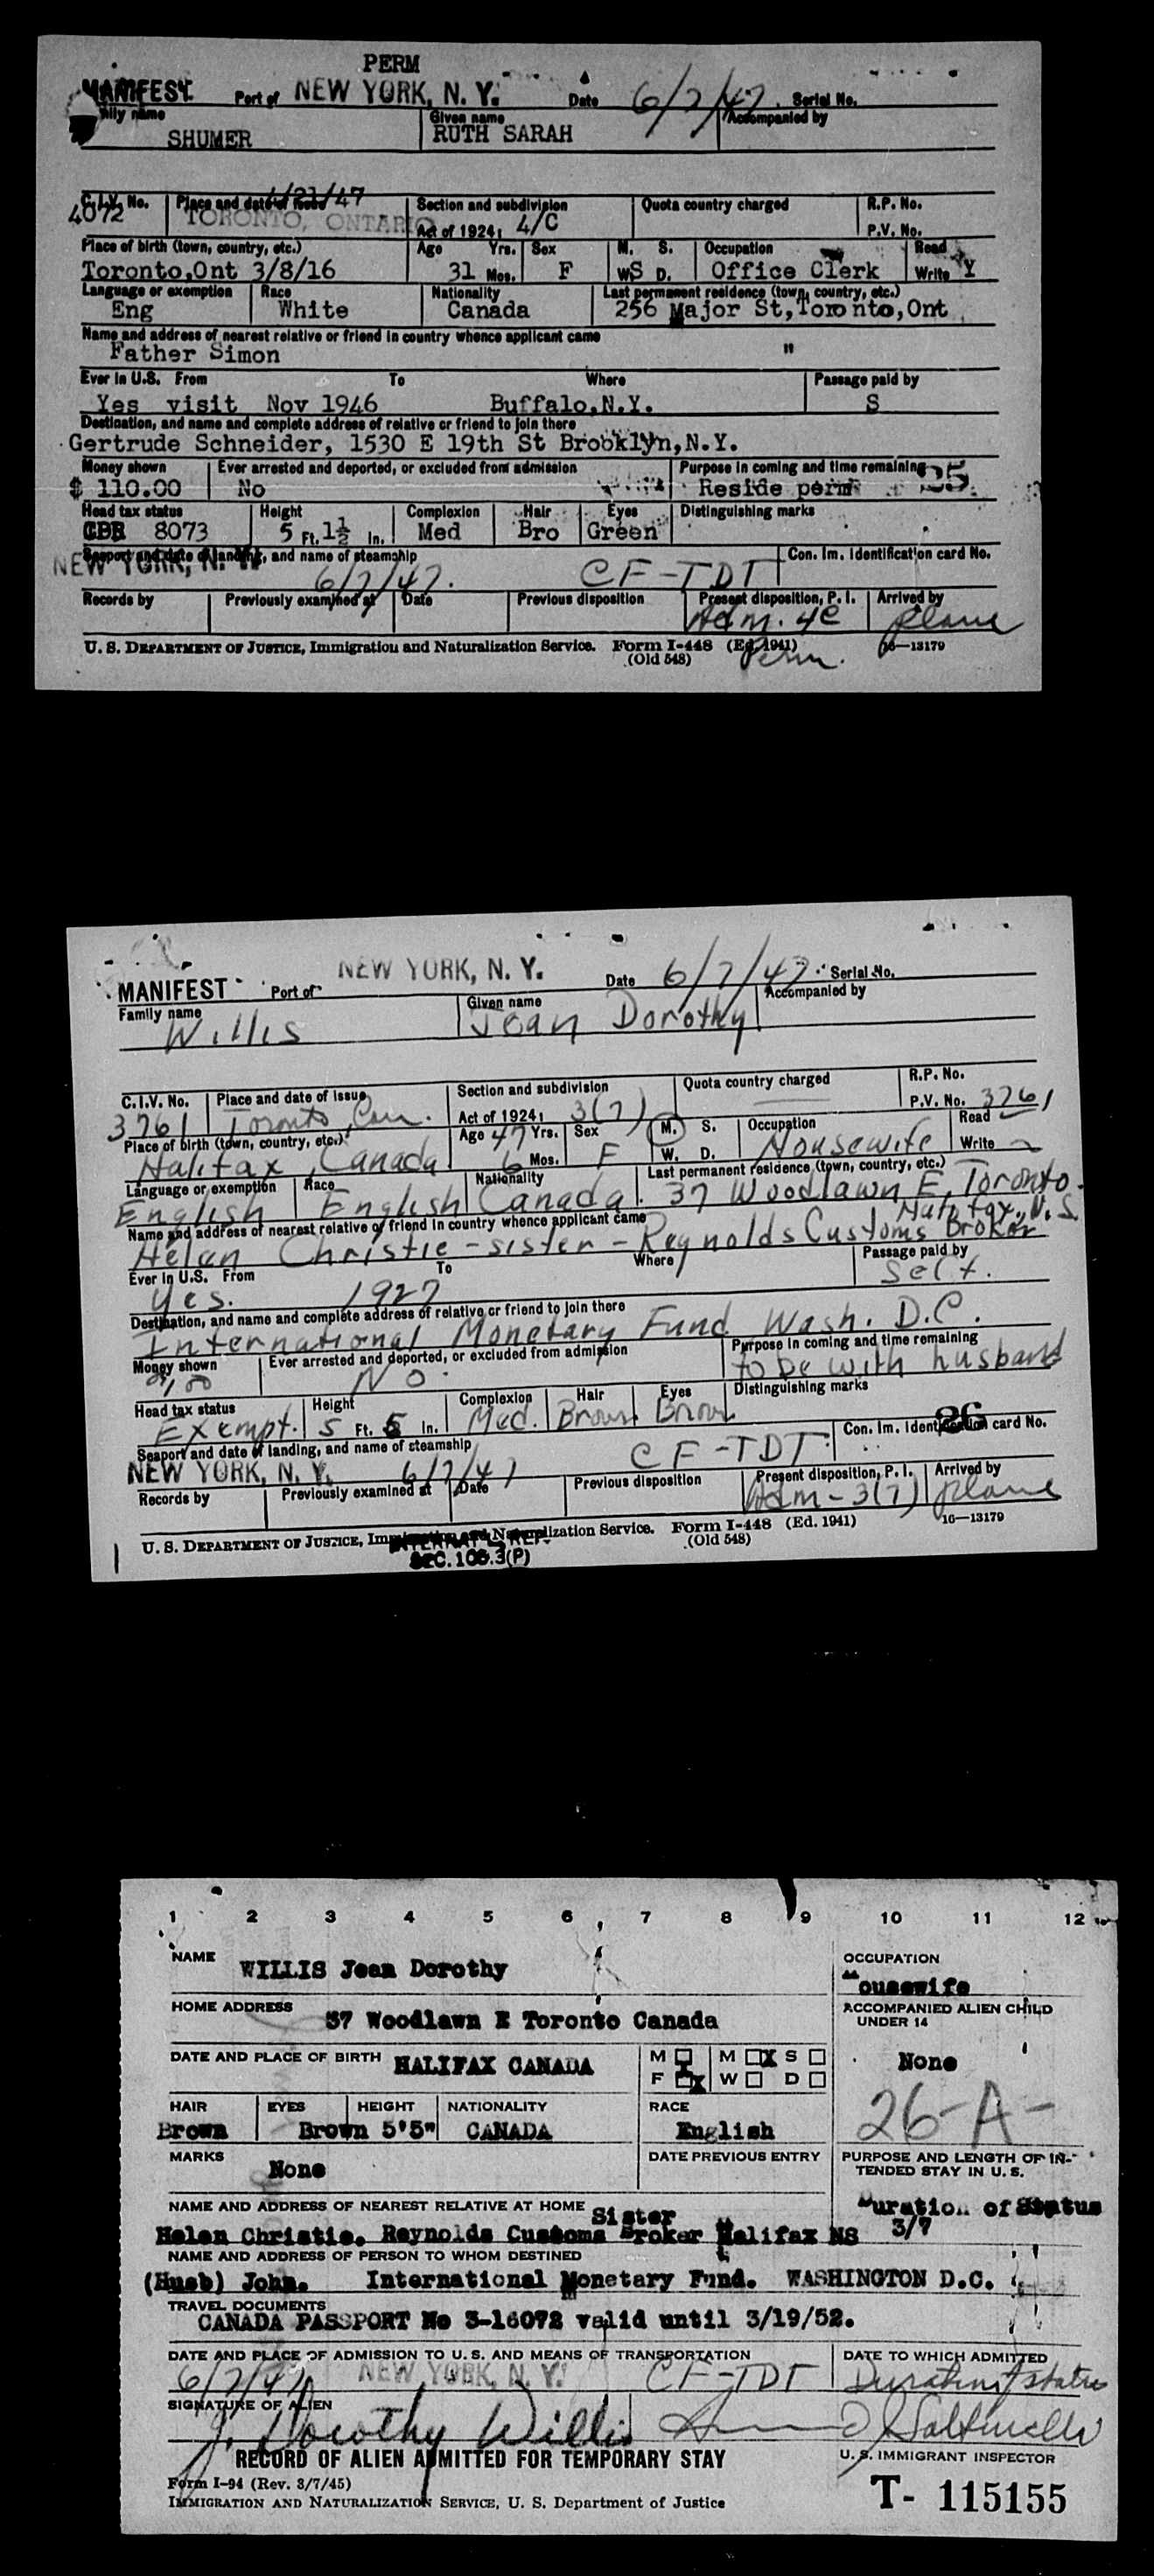 PERM
MANIFEST Port of NEW YORK, N. Y. Date 6/7/47 Serial No.
Family name Given name Accompanied by
SHUMER RUTH SARAH
C.I.V. No. Place and date of issue /47 Section and subdivision Quota country charged R.P. No.
4072 TORONTO, ONTARIO Act of 1924: 4/C P.V. No.
Place of birth (town, country, etc.) Age Yrs. Sex M. S. Occupation Read
Toronto,Ont 3/8/16 31 Mos. F W S D. Office Clerk Write Y
Language or exemption Race Nationality Last permanent residence (town, country, etc.)
Eng White Canada 256 Major St,Toronto,Ont
Name and address of nearest relative or friend in country whence applicant came
Father Simon "
Ever in U.S. From To Where Passage paid by
Yes visit Nov 1946 Buffalo,N.Y. S
Destination, and name and complete address of relative or friend to join there
Gertrude Schneider, 1530 E 19th St Brooklyn,N.Y.
Money shown Ever arrested and deported, or excluded from admission Purpose in coming and time remaining
$ 110.00 No Reside perm 25
Head tax status Height Complexion Hair Eyes Distinguishing marks
8073 5 Ft. 1½ In. Med Bro Green
Seaport and date of landing, and name of steamship Con. Im. Identification card No.
NEW YORK, N. Y. 6/7/47. CF-TDT
Records by Previously examined at Date Previous disposition Present disposition, P. I. Arrived by
Adm. 4C plane
U. S. DEPARTMENT OF JUSTICE, Immigration and Naturalization Service. Form I-448 (Ed. 1941) 16—13179
(Old 548) Perm.
NEW YORK, N. Y.
MANIFEST Port of Date 6/7/47 Serial No.
Family name Given name Accompanied by
Willis Jean Dorothy
C.I.V. No. Place and date of issue Section and subdivision Quota country charged R.P. No.
3761 Toronto, Can. Act of 1924: 3(7) P.V. No. 3761
Place of birth (town, country, etc.) Age 47 Yrs. Sex M. S. Occupation Read
Halifax, Canada 6 Mos. F W. D. Housewife Write
Language or exemption Race Nationality Last permanent residence (town, country, etc.)
English English Canada. 37 Woodlawn E, Toronto.
Name and address of nearest relative or friend in country whence applicant came Halifax, N.S.
Helen Christie - sister - Reynolds Customs Broker
Ever in U.S. From To Where Passage paid by
Yes. 1927 Self.
Destination, and name and complete address of relative or friend to join there
International Monetary Fund Wash. D.C.
Money shown Ever arrested and deported, or excluded from admission Purpose in coming and time remaining
No. to be with husband
Head tax status Height Complexion Hair Eyes Distinguishing marks
Exempt. 5 Ft. 5 In. Med. Brown Brown 26
Seaport and date of landing, and name of steamship Con. Im. Identification card No.
NEW YORK, N. Y. 6/7/47 CF-TDT
Records by Previously examined at Date Previous disposition Present disposition, P. I. Arrived by
Adm-3(7) plane
U. S. DEPARTMENT OF JUSTICE, Immigration and Naturalization Service. Form I-448 (Ed. 1941) 16—13179
(Old 548)
SEC. 108.3(P)
1 2 3 4 5 6 7 8 9 10 11 12
NAME WILLIS Jean Dorothy OCCUPATION
Housewife
HOME ADDRESS 37 Woodlawn E Toronto Canada ACCOMPANIED ALIEN CHILD UNDER 14
DATE AND PLACE OF BIRTH HALIFAX CANADA M F X M X S W D None
26-A-
HAIR EYES HEIGHT NATIONALITY RACE
Brown Brown 5'5" CANADA English
MARKS DATE PREVIOUS ENTRY PURPOSE AND LENGTH OF INTENDED STAY IN U. S.
None
NAME AND ADDRESS OF NEAREST RELATIVE AT HOME Sister Duration of Status
Helen Christie. Reynolds Customs Broker Halifax NS 3/7
NAME AND ADDRESS OF PERSON TO WHOM DESTINED
(Husb) John. International Monetary Fund. WASHINGTON D.C.
TRAVEL DOCUMENTS
CANADA PASSPORT No 3-16072 valid until 3/19/52.
DATE AND PLACE OF ADMISSION TO U. S. AND MEANS OF TRANSPORTATION DATE TO WHICH ADMITTED
6/7/47 NEW YORK, N. Y. CF-TDT Duration of status
SIGNATURE OF ALIEN
J. Dorothy Willis
RECORD OF ALIEN ADMITTED FOR TEMPORARY STAY U. S. IMMIGRANT INSPECTOR
Form I-94 (Rev. 3/7/45)
IMMIGRATION AND NATURALIZATION SERVICE, U. S. Department of Justice T- 115155